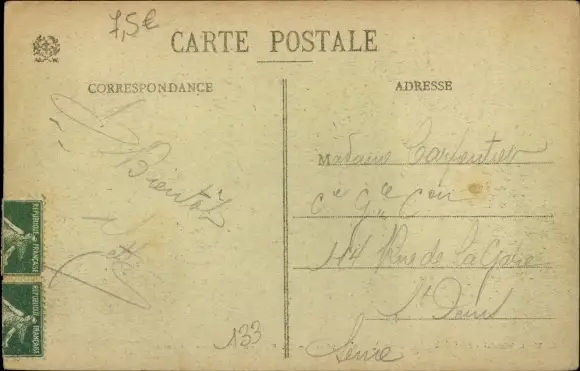 7,5€
CARTE POSTALE
CORRESPONDANCE
ADRESSE
A Bientôt
Madame Carpentier
Cie Gle
114 Rue de La Gare
St Denis
Seine
133
REPUBLIQUE FRANÇAISE
REPUBLIQUE FRANÇAISE